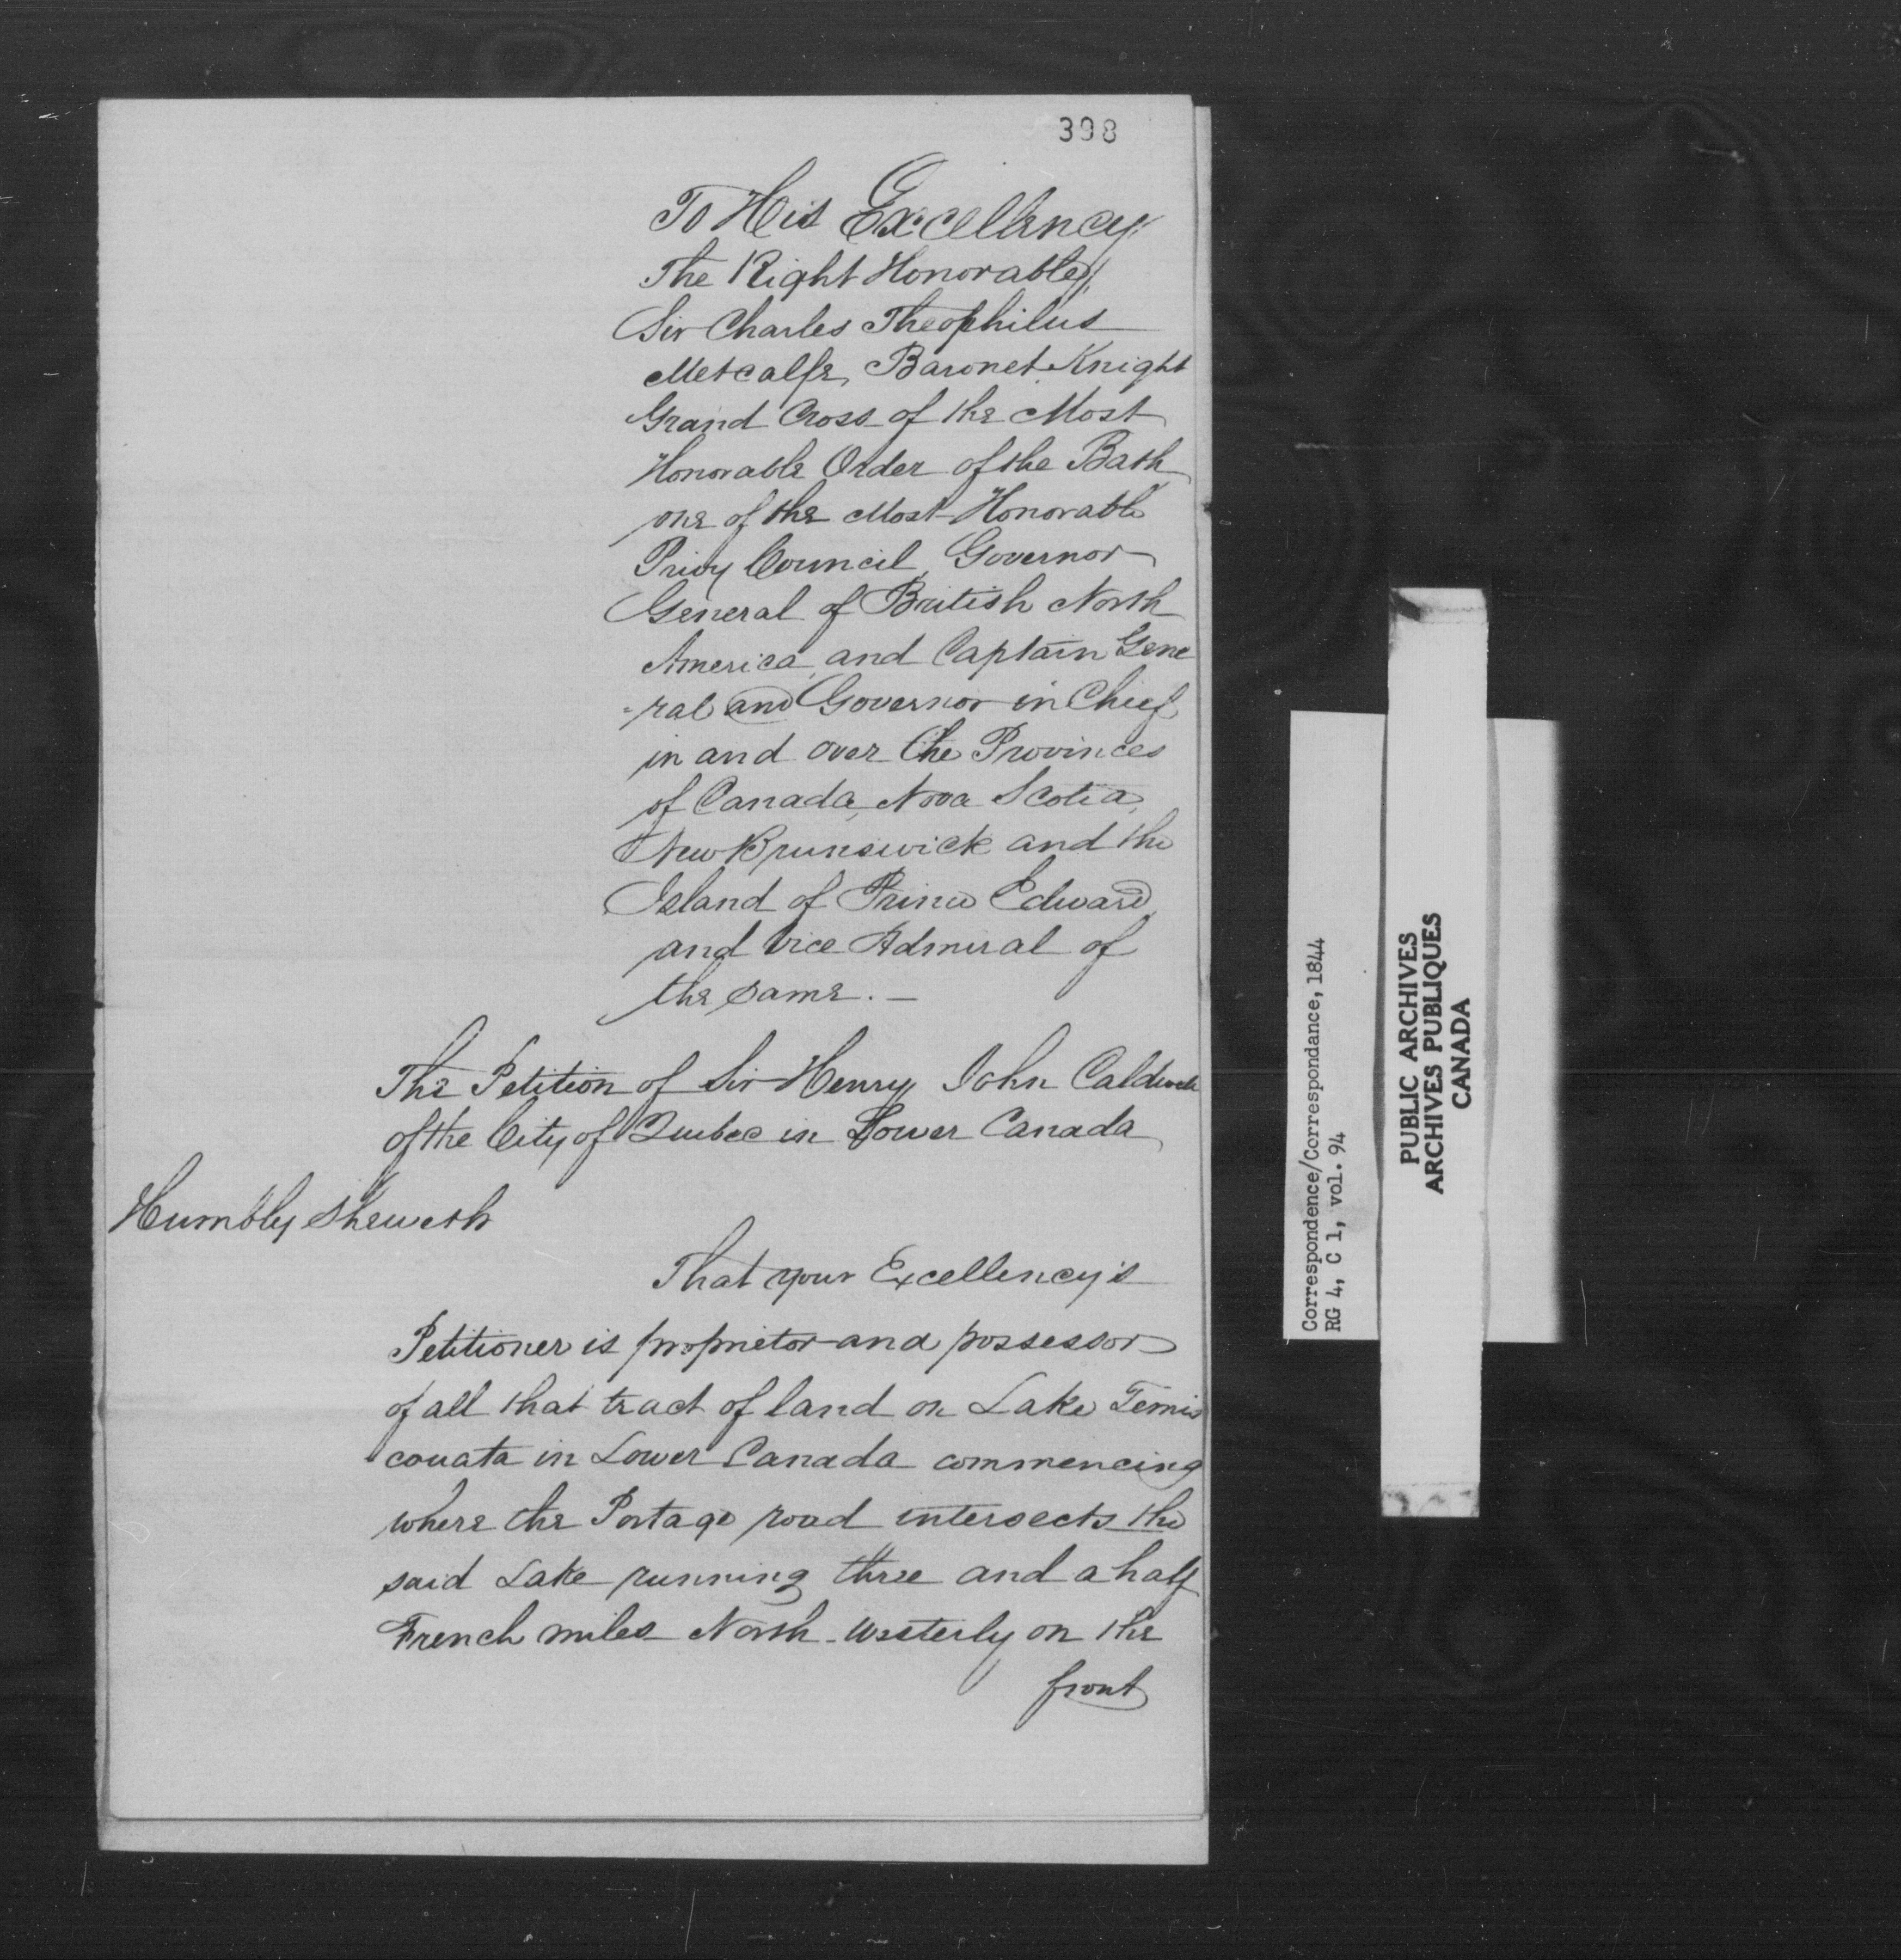 398
To His Excellency
The Right Honorable
Sir Charles Theophilus
Metcalfe, Baronet, Knight
Grand Cross of the Most
Honorable Order of the Bath
one of the Most Honorable
Privy Council, Governor
General of British North
America, and Captain Gene
-ral and Governor in Chief
in and over the Provinces
of Canada, Nova Scotia,
New Brunswick and the
Island of Prince Edward,
and Vice Admiral of
the same. —
The Petition of Sir Henry John Caldwell
of the City of Quebec in Lower Canada
Humbly Sheweth
That your Excellency's
Petitioner is proprietor and possessor
of all that tract of land on Lake Temis
couata in Lower Canada commencing
where the Portage road intersects the
said Lake running three and a half
French miles North-Westerly on the
front
Correspondence/Correspondance, 1844
RG 4, C 1, vol. 94
PUBLIC ARCHIVES
ARCHIVES PUBLIQUES
CANADA